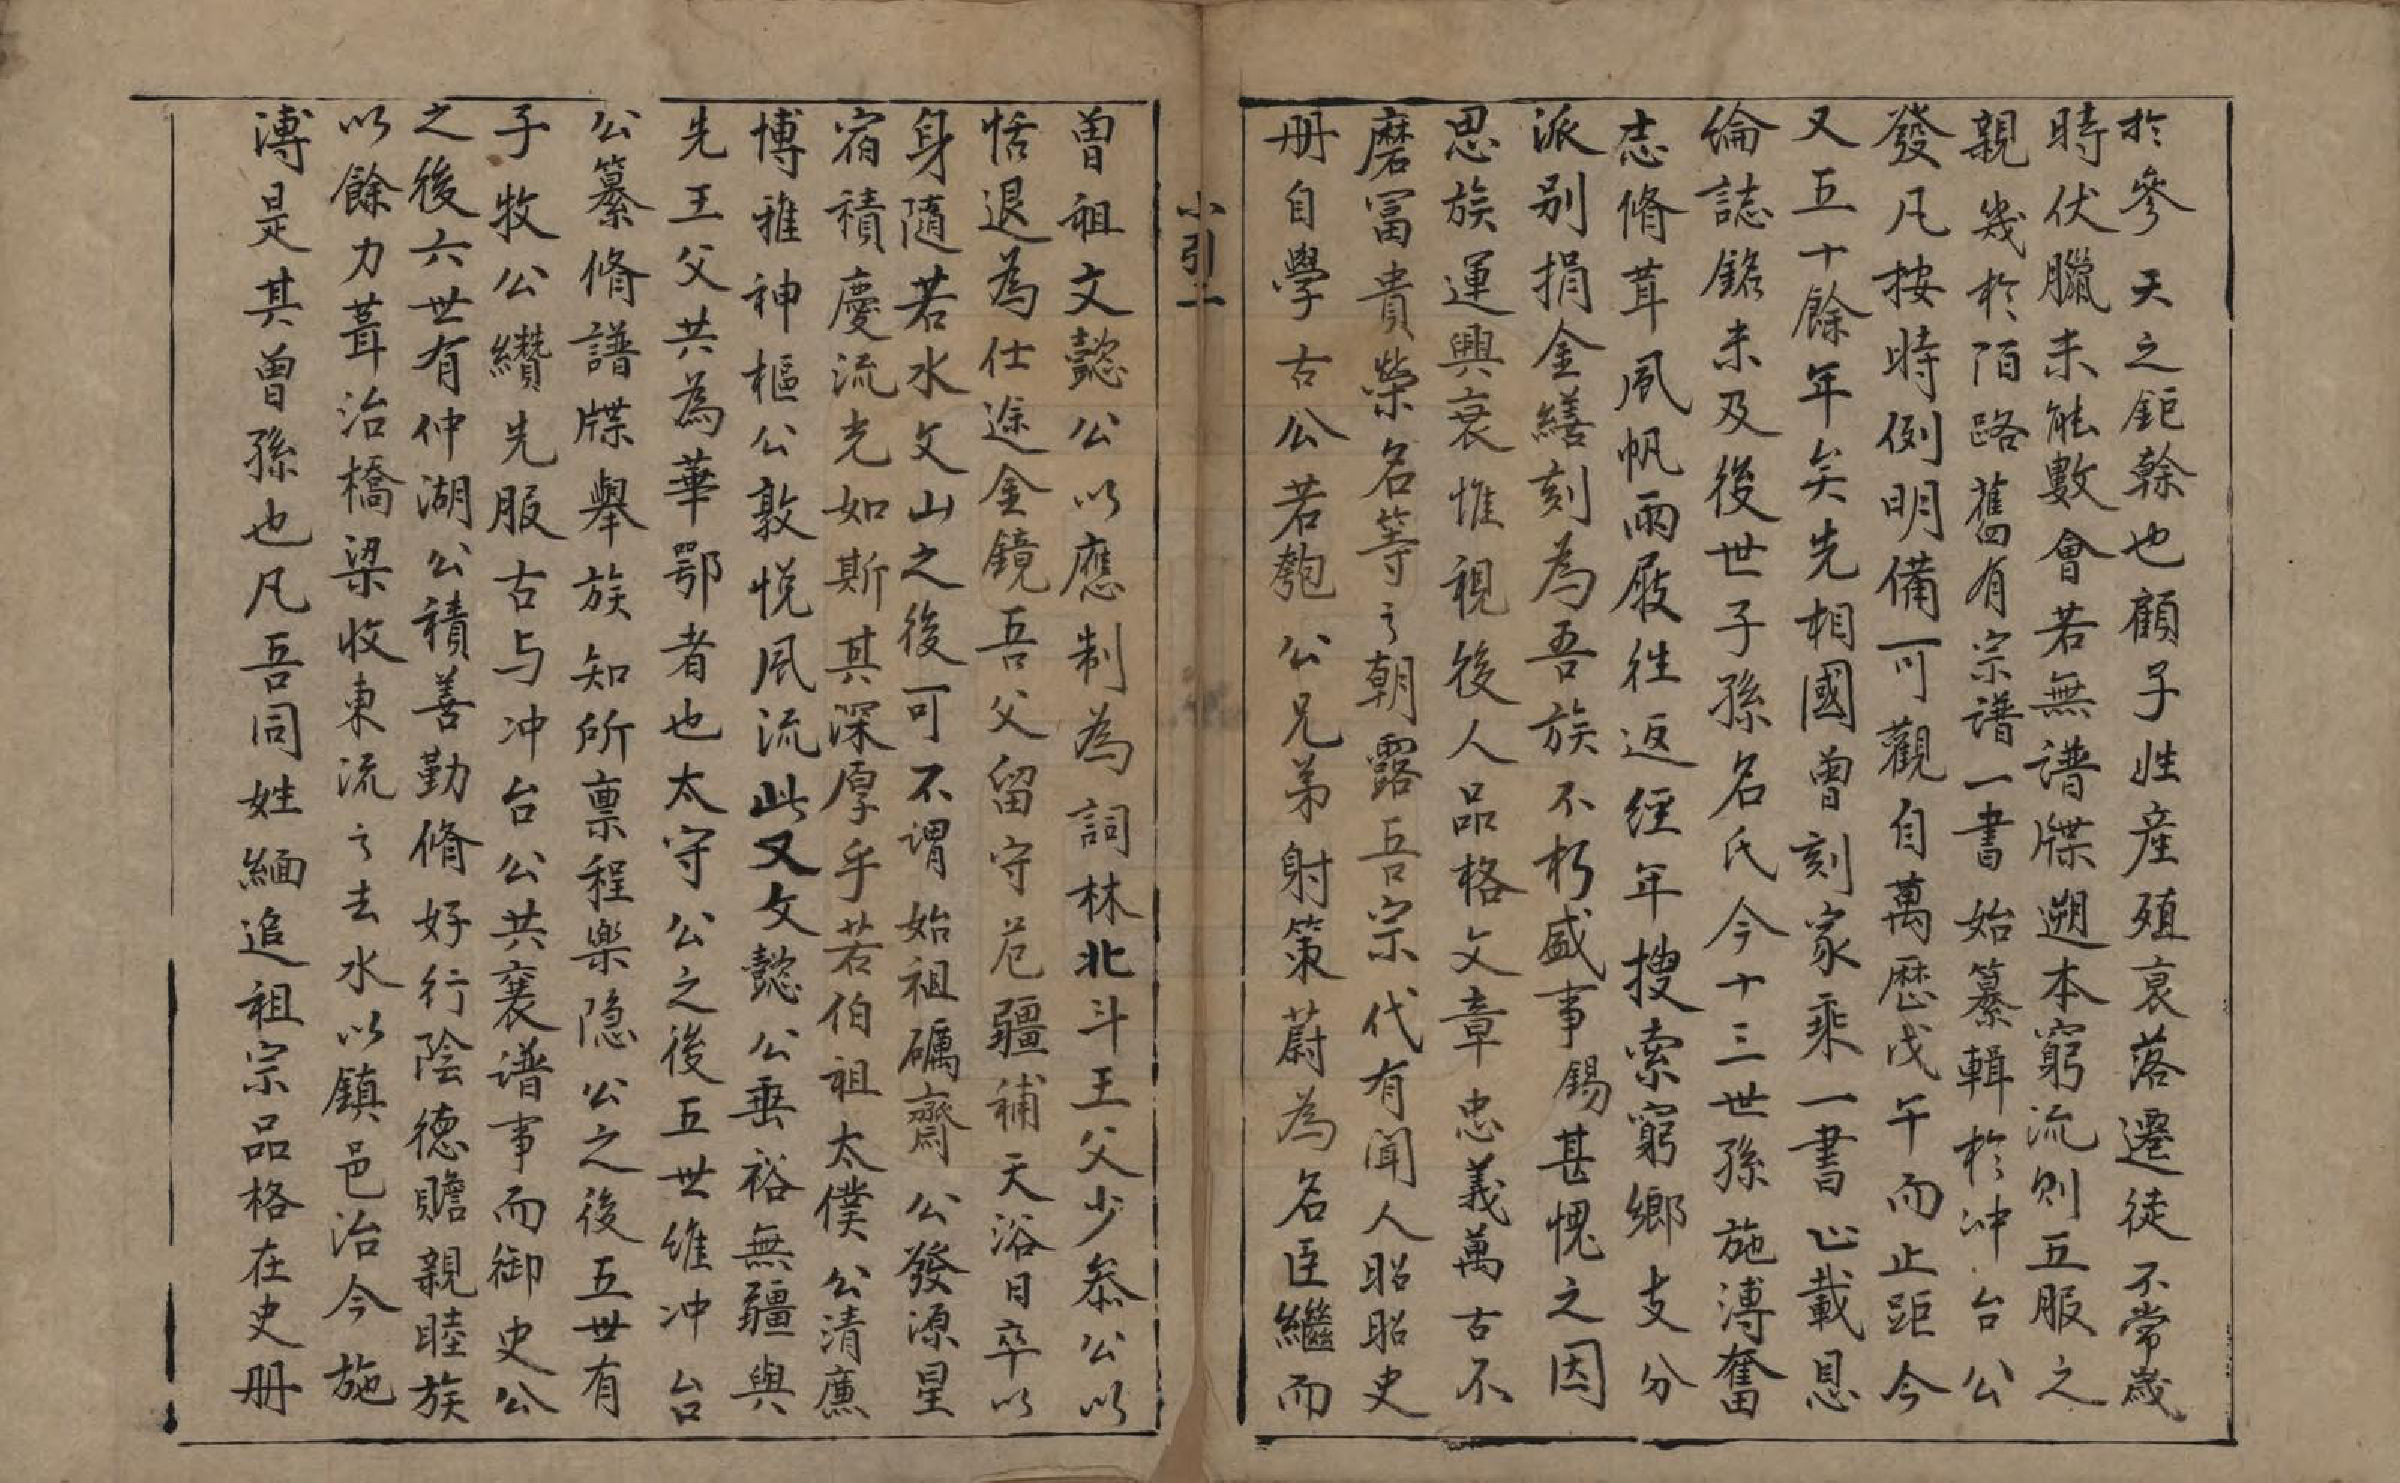 於參天之鉅榦也顧子姓產殖衰落遷徒不常歲
時伏臘未能數會若無譜牒遡本窮流則五服之
親幾於陌路舊有宗譜一書始纂輯於冲台公
發凡按時例明備可觀自萬歷戊午而止距今
又五十餘年矣先相國曾刻家乘一書止載恩
綸誌銘未及後世子孫名氏今十三世孫施溥奮
志脩茸風帆雨屐徃返經年搜索窮鄉支分
派别捐金繕刻為吾族不朽盛事錫甚愧之因
思族運興衰惟視後人品格文章忠義萬古不
磨冨貴榮名等之朝露吾宗代有聞人昭昭史
册自學古公若匏公兄弟射策蔚為名臣繼而
小引二
曾祖文懿公以應制為詞林北斗王父少叅公以
恬退為仕途金鏡吾父留守危疆補天浴日卒以
身隨若水文山之後可不謂始祖礪齋公發源星
宿積慶流光如斯其深厚乎若伯祖太僕公清廉
博雅神樞公敦悅風流此又文懿公垂裕無疆與
先王父共為華鄂者也太守公之後五世維冲台
公纂脩譜牒舉族知所禀程樂隐公之後五世有
子牧公纘先服古与冲台公共襄谱事而御史公
之後六世有仲湖公積善勤脩好行陰德贍親睦族
以餘力葺治橋梁收東流之去水以鎮邑治今施
溥是其曾孫也凡吾同姓緬追祖宗品格在史册